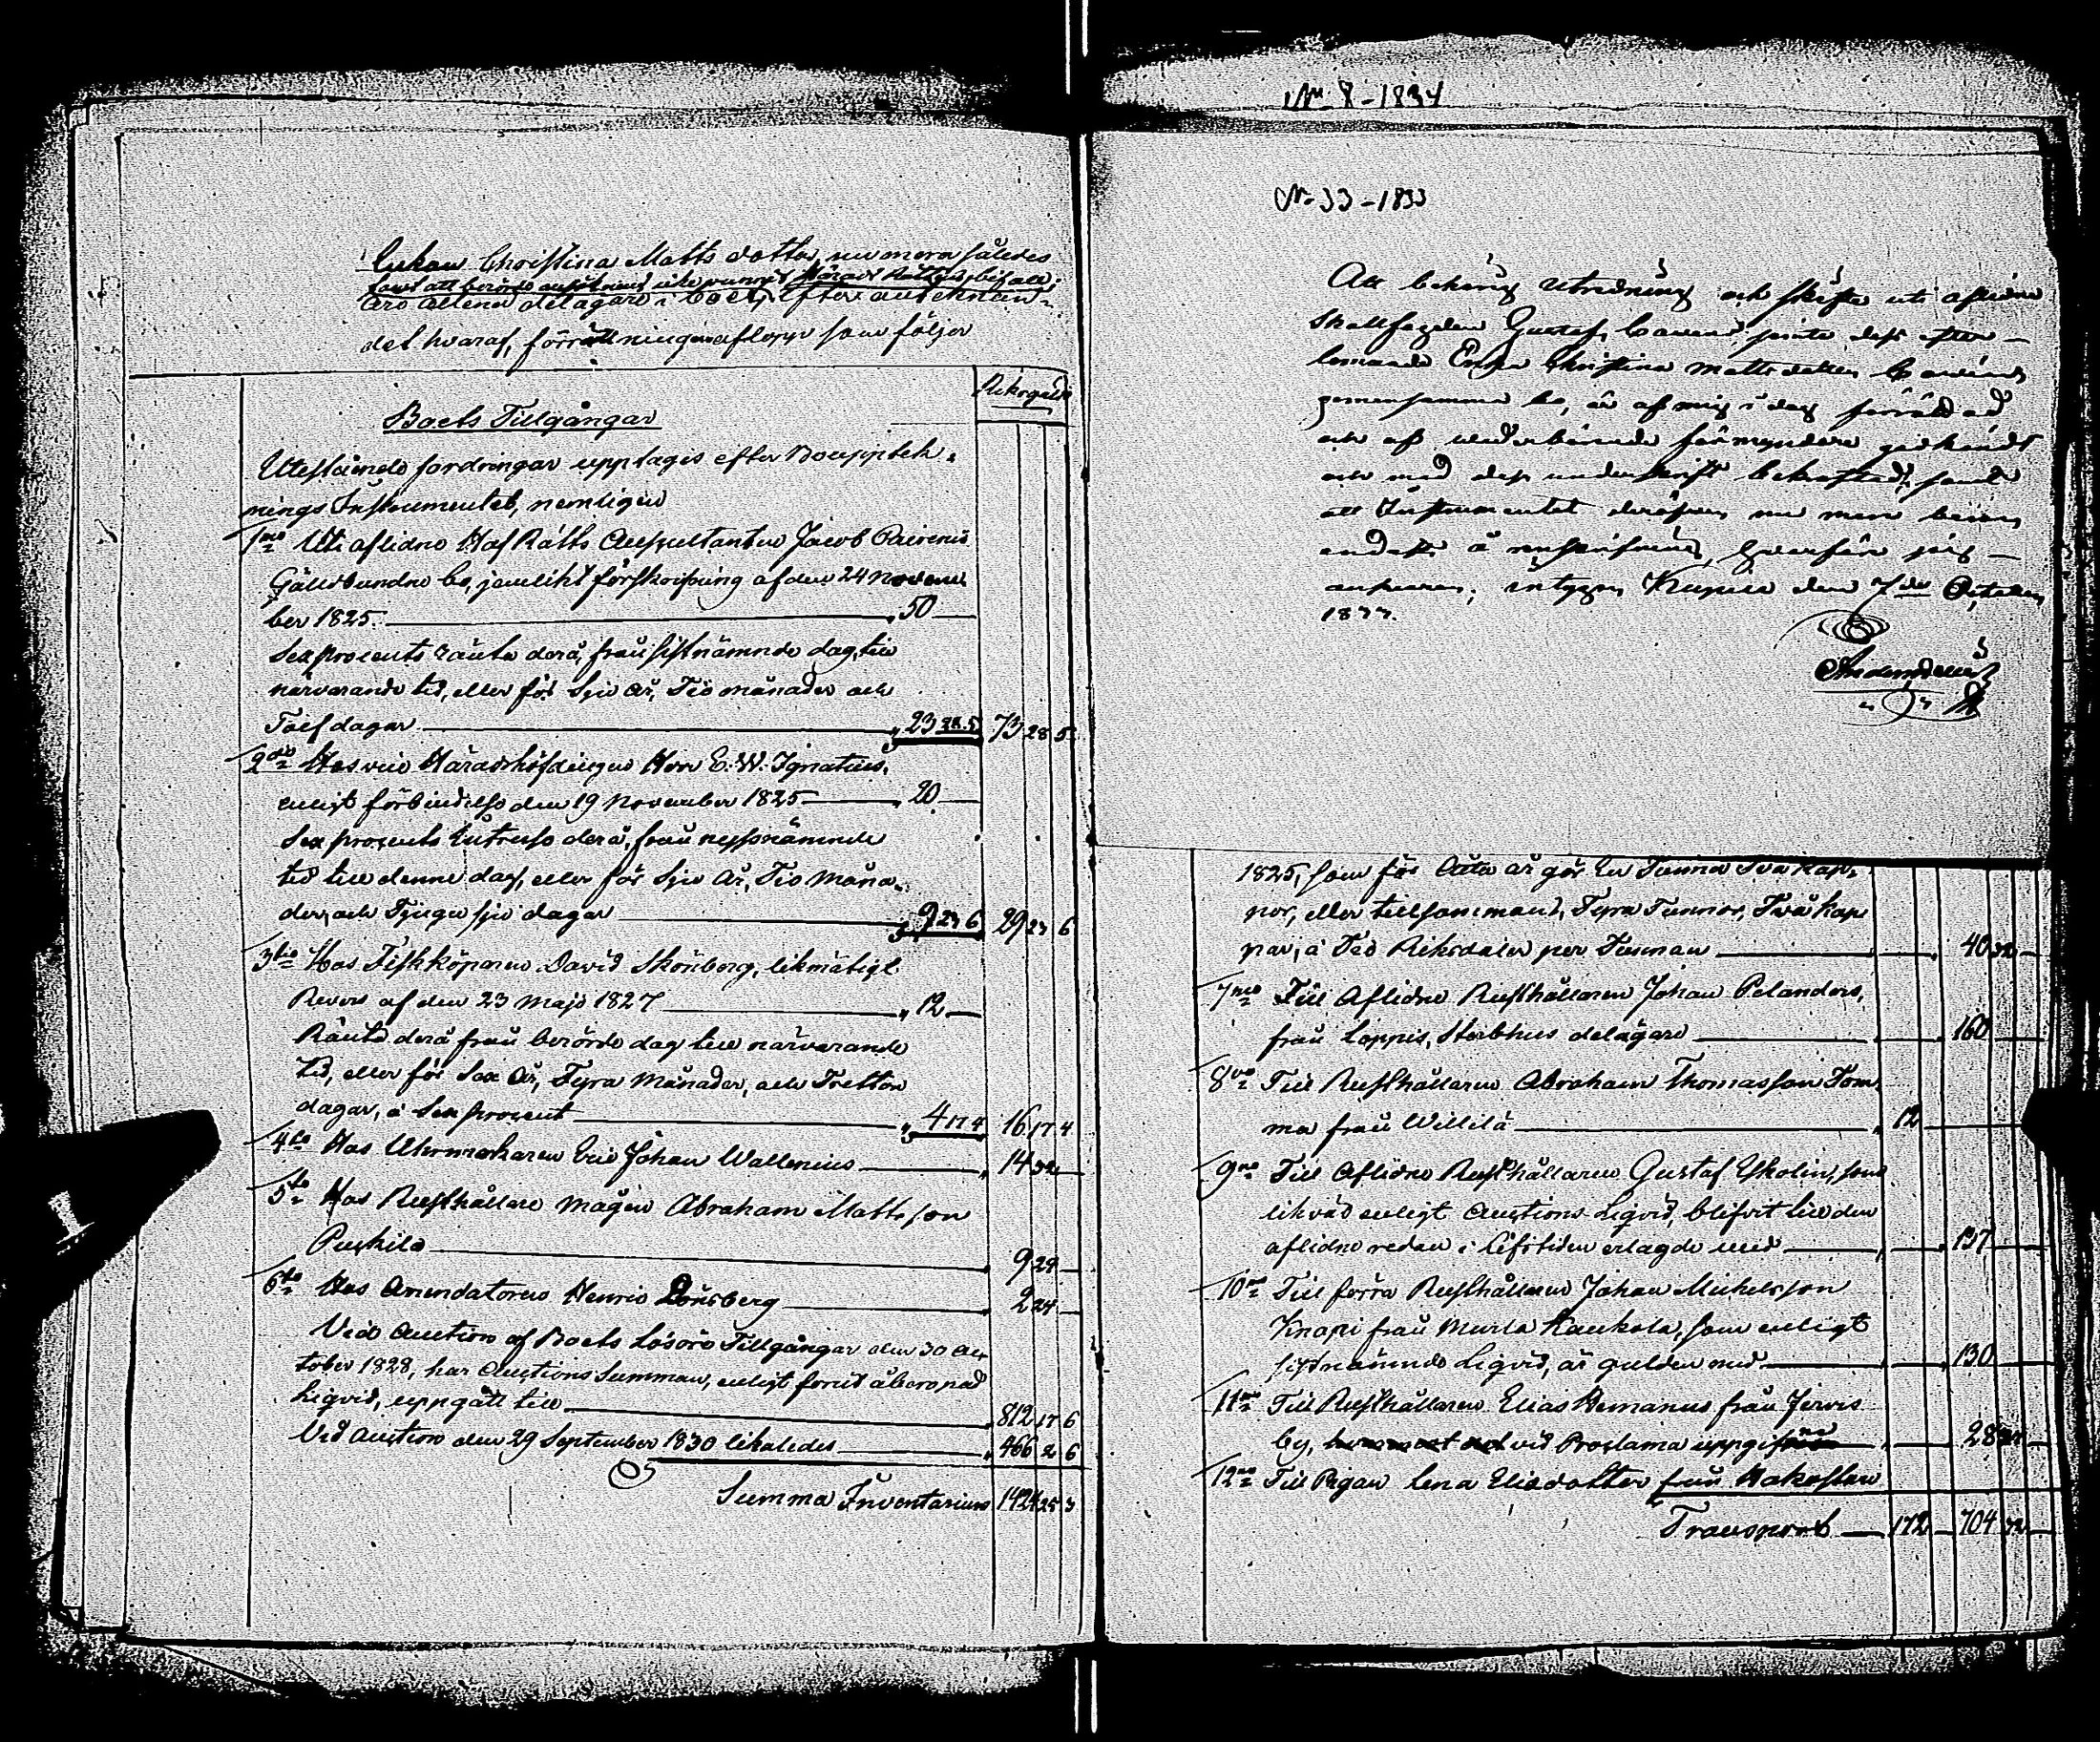 Enkan Christina Matts dotter, nu mera således
samt att berörde afsöknad icke vunnit Härads Rättens bifall,
äro allena delägare i boet, efter anteknan¬
det hvaraf, förrättningen aflopp som följer
Riksgälds
Boets Tillgångar
Utestående fordringar upptages efter Bouppteck¬
nings Instrumentet, nemligen
1mo Uti aflidne Hof Rätts Auscultanten Jacob
Gäldbundne bo, jemlikt förskrifning af den 24 Novem
ber 1825. „ 50 —
Sex procents ränta derå, från sistnämnde dag, till
närvarande tid, eller för Sju år, Tio månader och
Tolf dagar „ 23 28. 5 73 28 5
2do Hos vice Häradshöfdingen Herr E. W. Ignatius,
enligt förbindelse den 19 November 1825 „ 20 —
Sex procents Intresse derå, från nyssnämnde
tid till denne dag, eller för Sju år, Tio Måna¬
der, och Tjugu sju dagar „ 9 23 6 29 23 6
3tio Hos Fiskköparen David Skönberg, likmätigt
Revers af den 23 Maji 1827 „ 12 —
Ränta derå från berörde dag till närvarande
tid, eller för Sex År, Fyra Månader, och Tretton
dagar, à Sex procent „ 4 17 4 16 17 4
4to Hos Uhrmakaren Eric Johan Wallenius „ 14 32 —
5to Hos Rusthållare Mågen Abraham Matts son
Puskila „ 9 28 —
6to Hos Arrendatoren Henric Lönsberg „ 2 24 —
Vid Auction af Boets Lösöre Tillgångar den 30 Oc¬
tober 1828, har Auctions Summan, enligt förut åberopad
Liqvid, uppgått till „ 812 17 6
Vid Auction den 29 September 1830 likaledes „ 466 2 6
Summa Inventarium 1424 25 3
No 8 - 1834
No 33 - 1833
Att behörig Utredning och skifte uti aflidne
Gustaf samt dess efter¬
lemnade Enka Christina Mattsdotter
gemensamma bo, är af mig i dag förrättad
och af vederbörande förmyndare godkändt
och med dess underskrift bekräftad, samt
att Instrumentet deröfver nu mera
endast å
intygar den 7de October
1833.
1825, som för Åtta år gör En Tunna Två kap¬
por, eller tillsammans, Fyra Tunnor, Två kap
par, à Tio Riksdaler per Tunnan „ 40 32 —
7mo Till Aflidne Rusthållaren Johan Pelanders,
från Loppis, Sterbhus delägare „ 160 —
8vo Till Rusthållaren Abraham Thomasson Tom
ma från Willilä „ 12 —
9no Till Aflidne Rusthållaren Gustaf Yskolin, som
likväl enligt Auctions Liqvid, blifvit till den
aflidne redan i lifstiden erlagde med „ 137 —
10mo Till förra Rusthållaren Johan Michelsson
Knapi från Murla Kaukola, som enligt
sistnämnde Liqvid, är gulden med „ 130 —
11mo Till Rusthållaren Elias Hemanus från Jervis
by, vid Proclama uppgifne „ 28
12mo Till Pigan Lena Eliedotter från
Transport 172 — 704 32 —